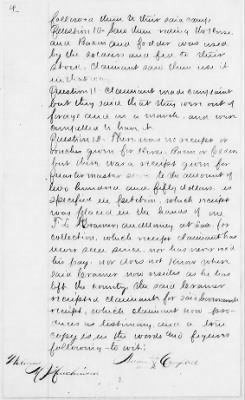 followed them to their said camp
Question 10. Saw them riding the horse
and Bacon and fodder was used
by the soldiers and fed to their
stock. Claimant saw them use it
Question 11. Claimant made complaint
but they said that they were out of
forage and on a march, and were
compelled to have it.
Question 12. There was no receipt or
voucher given for Horse, Bacon or fodder
but there was a receipt given for
quartermaster stores to the amount of
two hundred and fifty dollars as
specified in petition, which receipt
was placed in the hands of one
Kramer an attorney at Law for
collection, which receipt claimant has
never seen since, nor has ever rec'd
his pay, nor does not know where
said Kramer now resides as he has
left the country. The said Kramer
receipted claimant for said
receipt, which claimant now pro-
duces as testimony and a true
copy is, in the words and figures
following, to wit:
Hutchinson